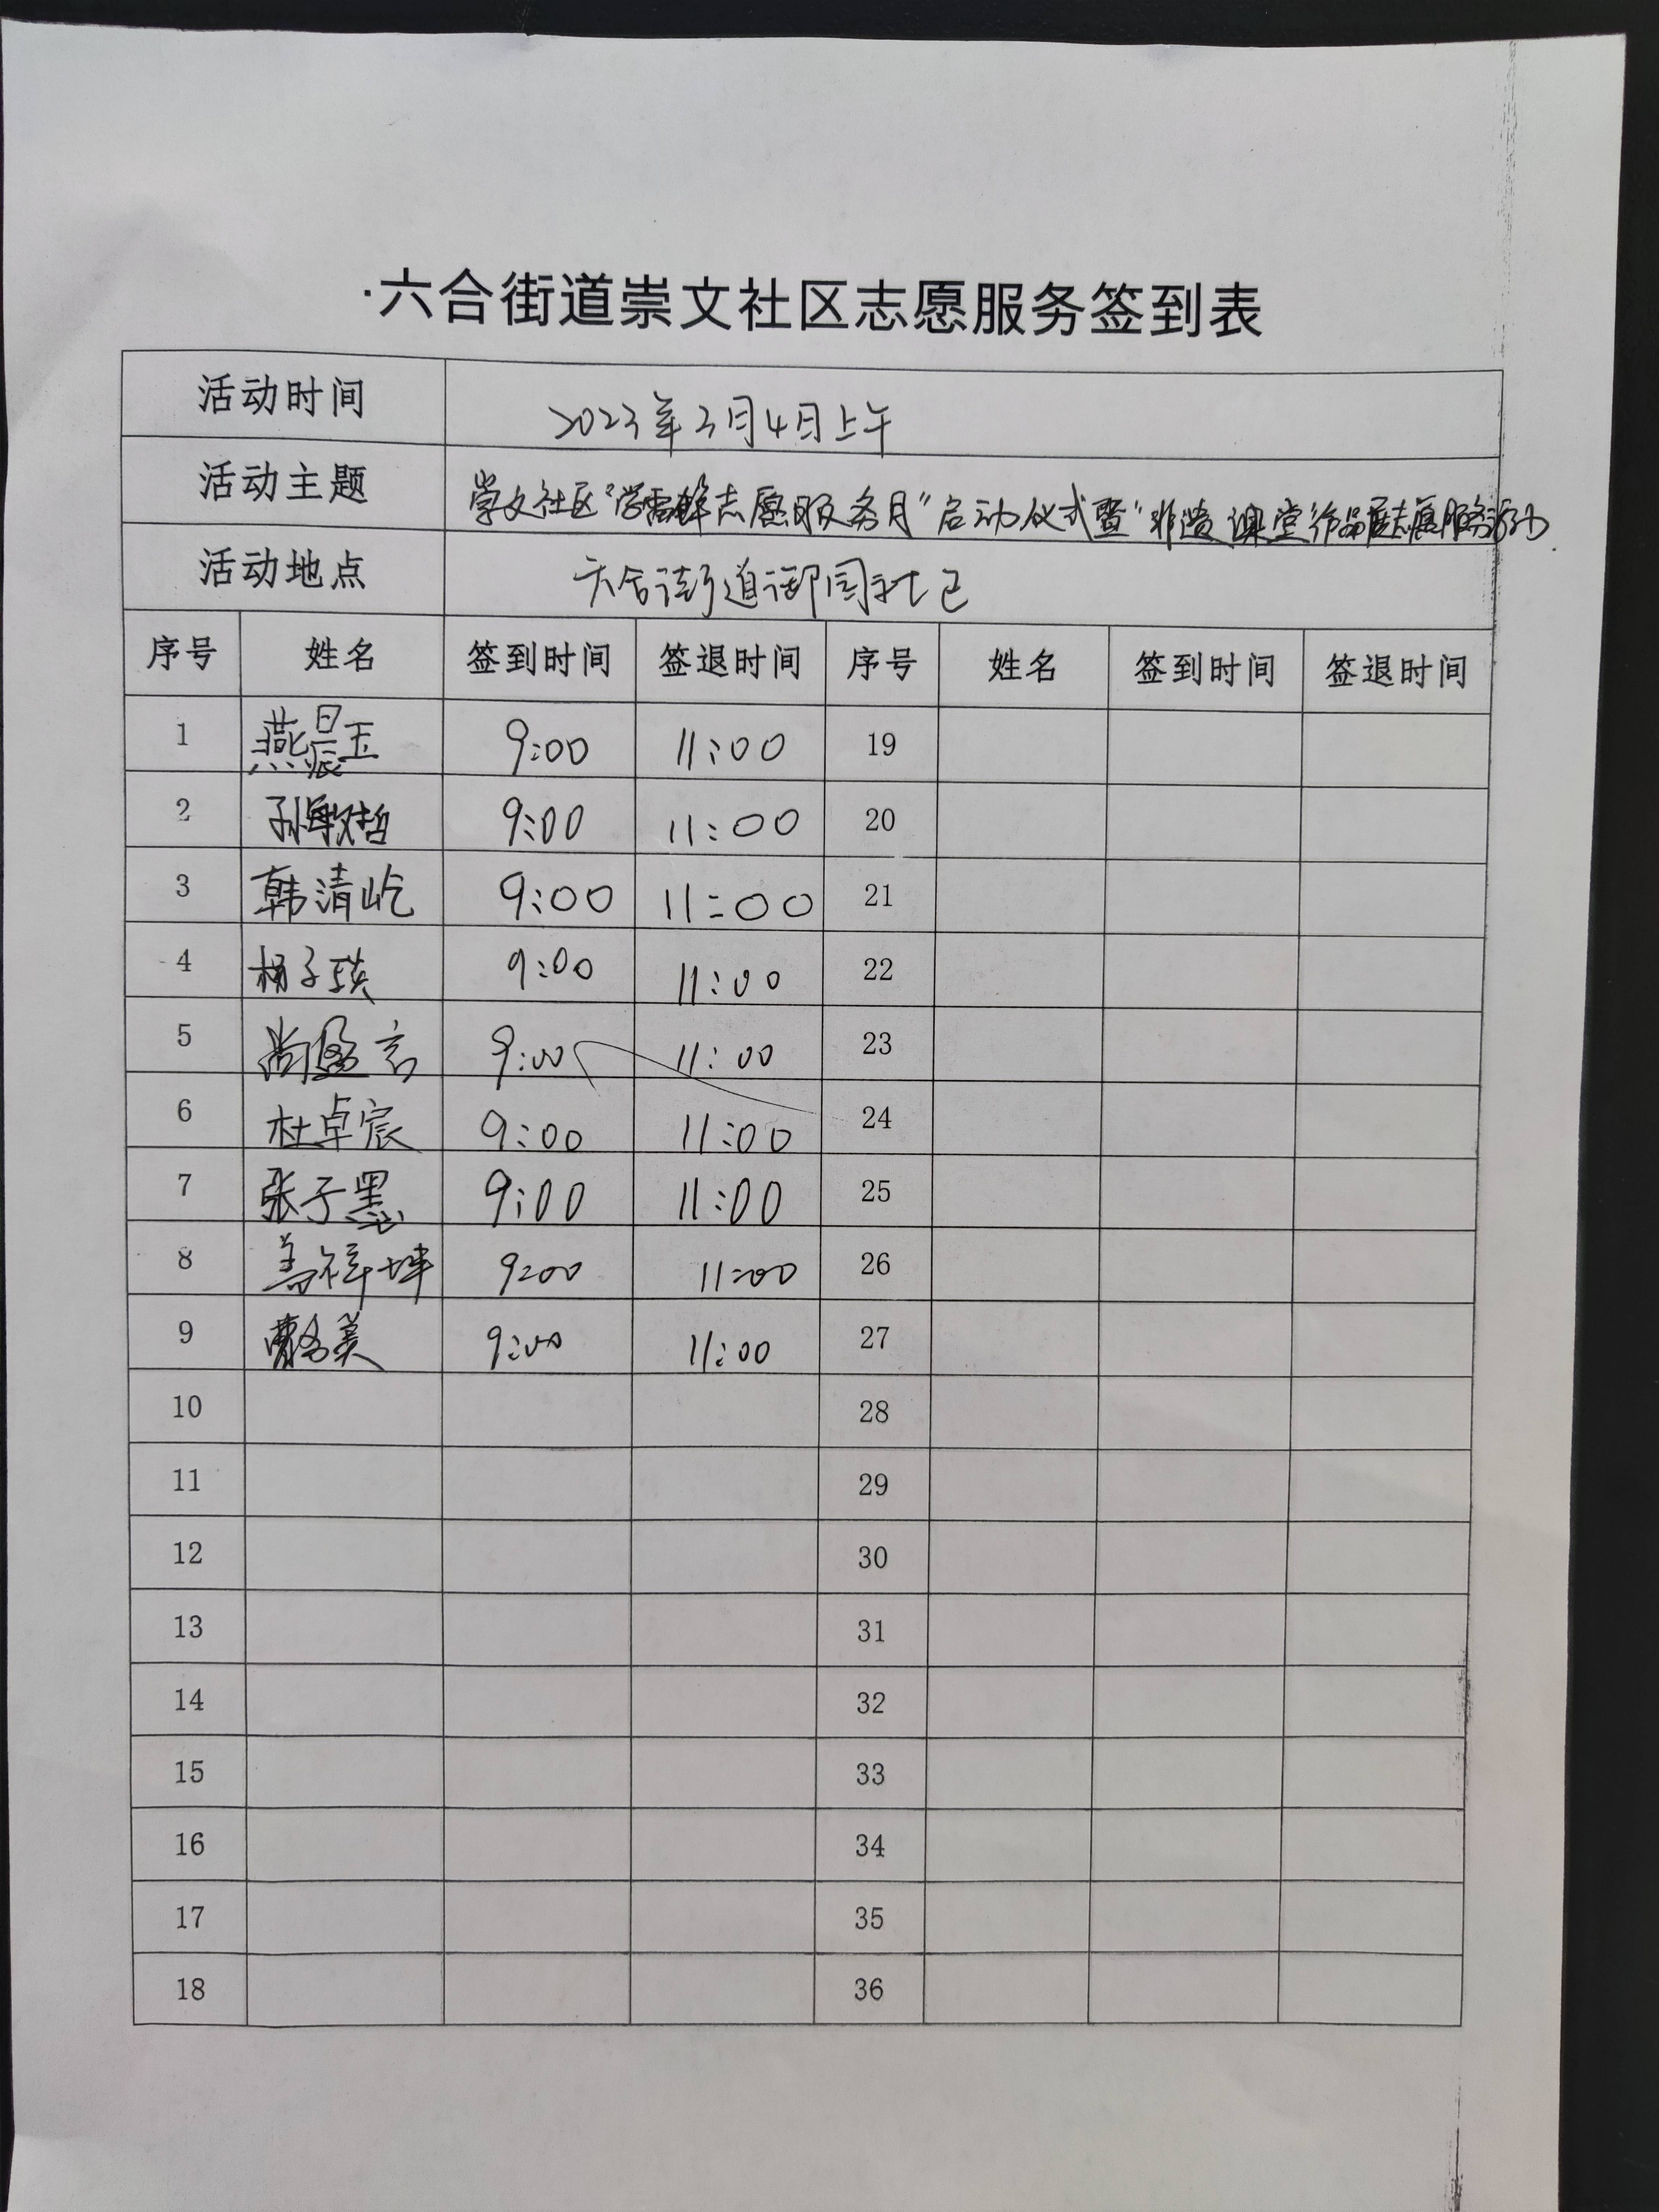 ·六合街道崇文社区志愿服务签到表
活动时间 2023年3月4日上午
活动主题 崇文社区“学雷锋志愿服务月”启动仪式暨“非遗课堂作品展志愿服务活动
活动地点 六合街道御园社区
序号 姓名 签到时间 签退时间 序号 姓名 签到时间 签退时间
1 燕晨玉 9:00 11:00 19
2 孙敏哲 9:00 11:00 20
3 韩清屹 9:00 11:00 21
4 杨子琪 9:00 11:00 22
5 尚盈言 9:00 11:00 23
6 杜卓宸 9:00 11:00 24
7 张子墨 9:00 11:00 25
8 祥坤 9:00 11:00 26
9 曹 美 9:00 11:00 27
10 28
11 29
12 30
13 31
14 32
15 33
16 34
17 35
18 36